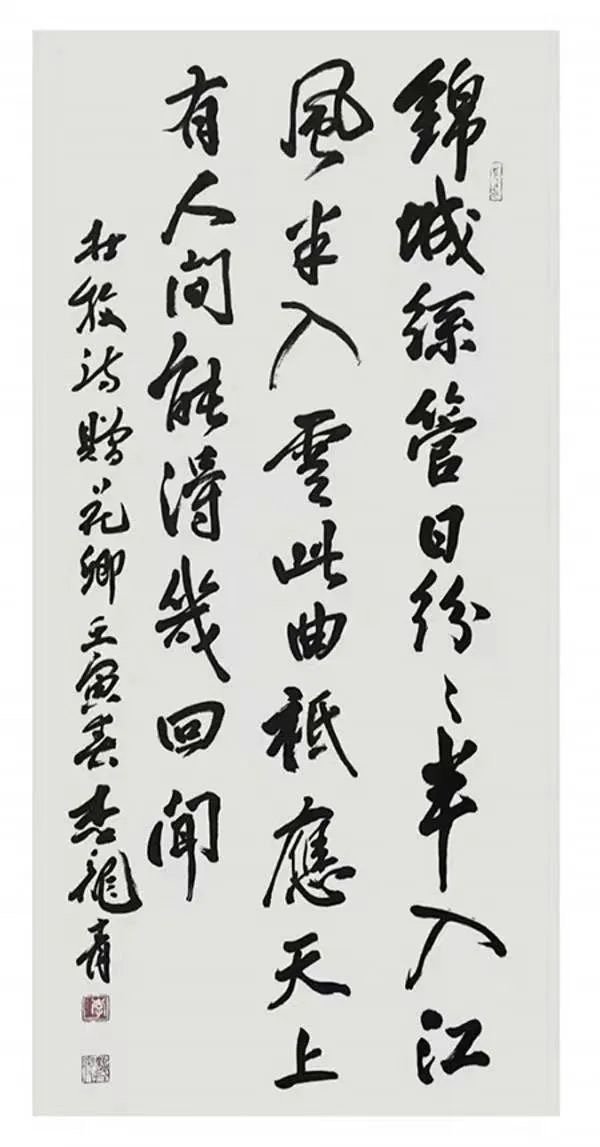 錦城絲管日紛〻半入江
風半入雲此曲祇應天上
有人間能得幾回聞
杜牧詩贈花卿壬寅春龍